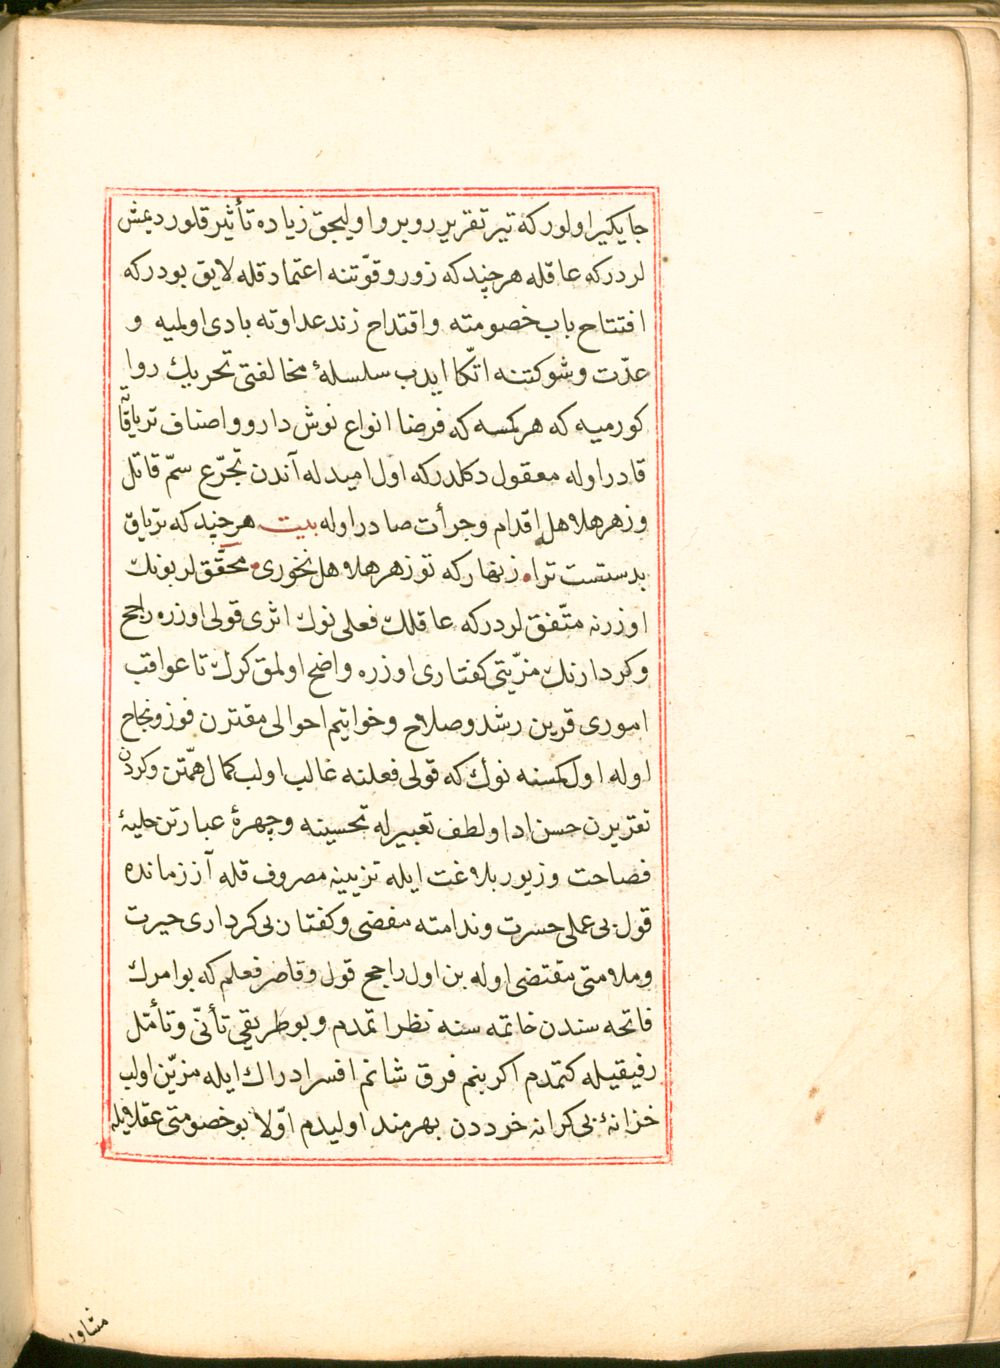 جايكير اولور كه تير تقرير روبرو اوليجق زياده تأثير قلور ديمش
لردركه عاقله هر چند كه زور و قوّتنه اعتماد قله لايق بودركه
افتتاح باب خصومته واقتداح زند عداوته بادى اولميه و
عدّت وشوكتنه اتّكا ايدب سلسلهٔ مخالفتى تحريك روا
كورميه كه هركمسه كه فرضا انواع نوش دارو واصناف ترياقه
قادر اوله معقول دكلدركه اول اميدله آندن تجرّع سمّ قاتل
وزهر هلاهل اقدام وجرأت صادر اوله بيت هر چند كه ترياق
بدستست ترا زنهار كه تو زهر هلاهل نخورى محقّق لر بونك
اوزرنه متّفق لردركه عاقلك فعلى نوك اثرى قولى اوزره راجح
وكردارنك مزيّتى كفتارى اوزره واضح اولمق كرك تا عواقب
امورى قرين رشد وصلاح وخواتيم احوالى مقترن فوز ونجاح
اوله اول كمسنه نوك كه قولى فعلنه غالب اولب كمال همّتن
تقريرن حسن ادا ولطف تعبيرله تحسينه وچهرهٔ عبارتن حليهٔ
فصاحت وزيور بلاغت ايله تزيينه مصروف قله آز زمانده
قول بى عملى حسرت وندامته مفضى وكفتار بى كردارى حيرت
وملامتى مقتضى اوله بن اول راجح قول وقاصر فعلم كه بو امرك
فاتحه سندن خاتمه سنه نظر اتمدم وبو طريقى تأنّى وتأمّل
رفيقيله كتمدم اكر بنم فرق شانم افسر ادراك ايله مزيّن اولب
خزانهٔ بى كرانه خرددن بهرمند اوليدم اوّلا بو خصومتى عقلايله